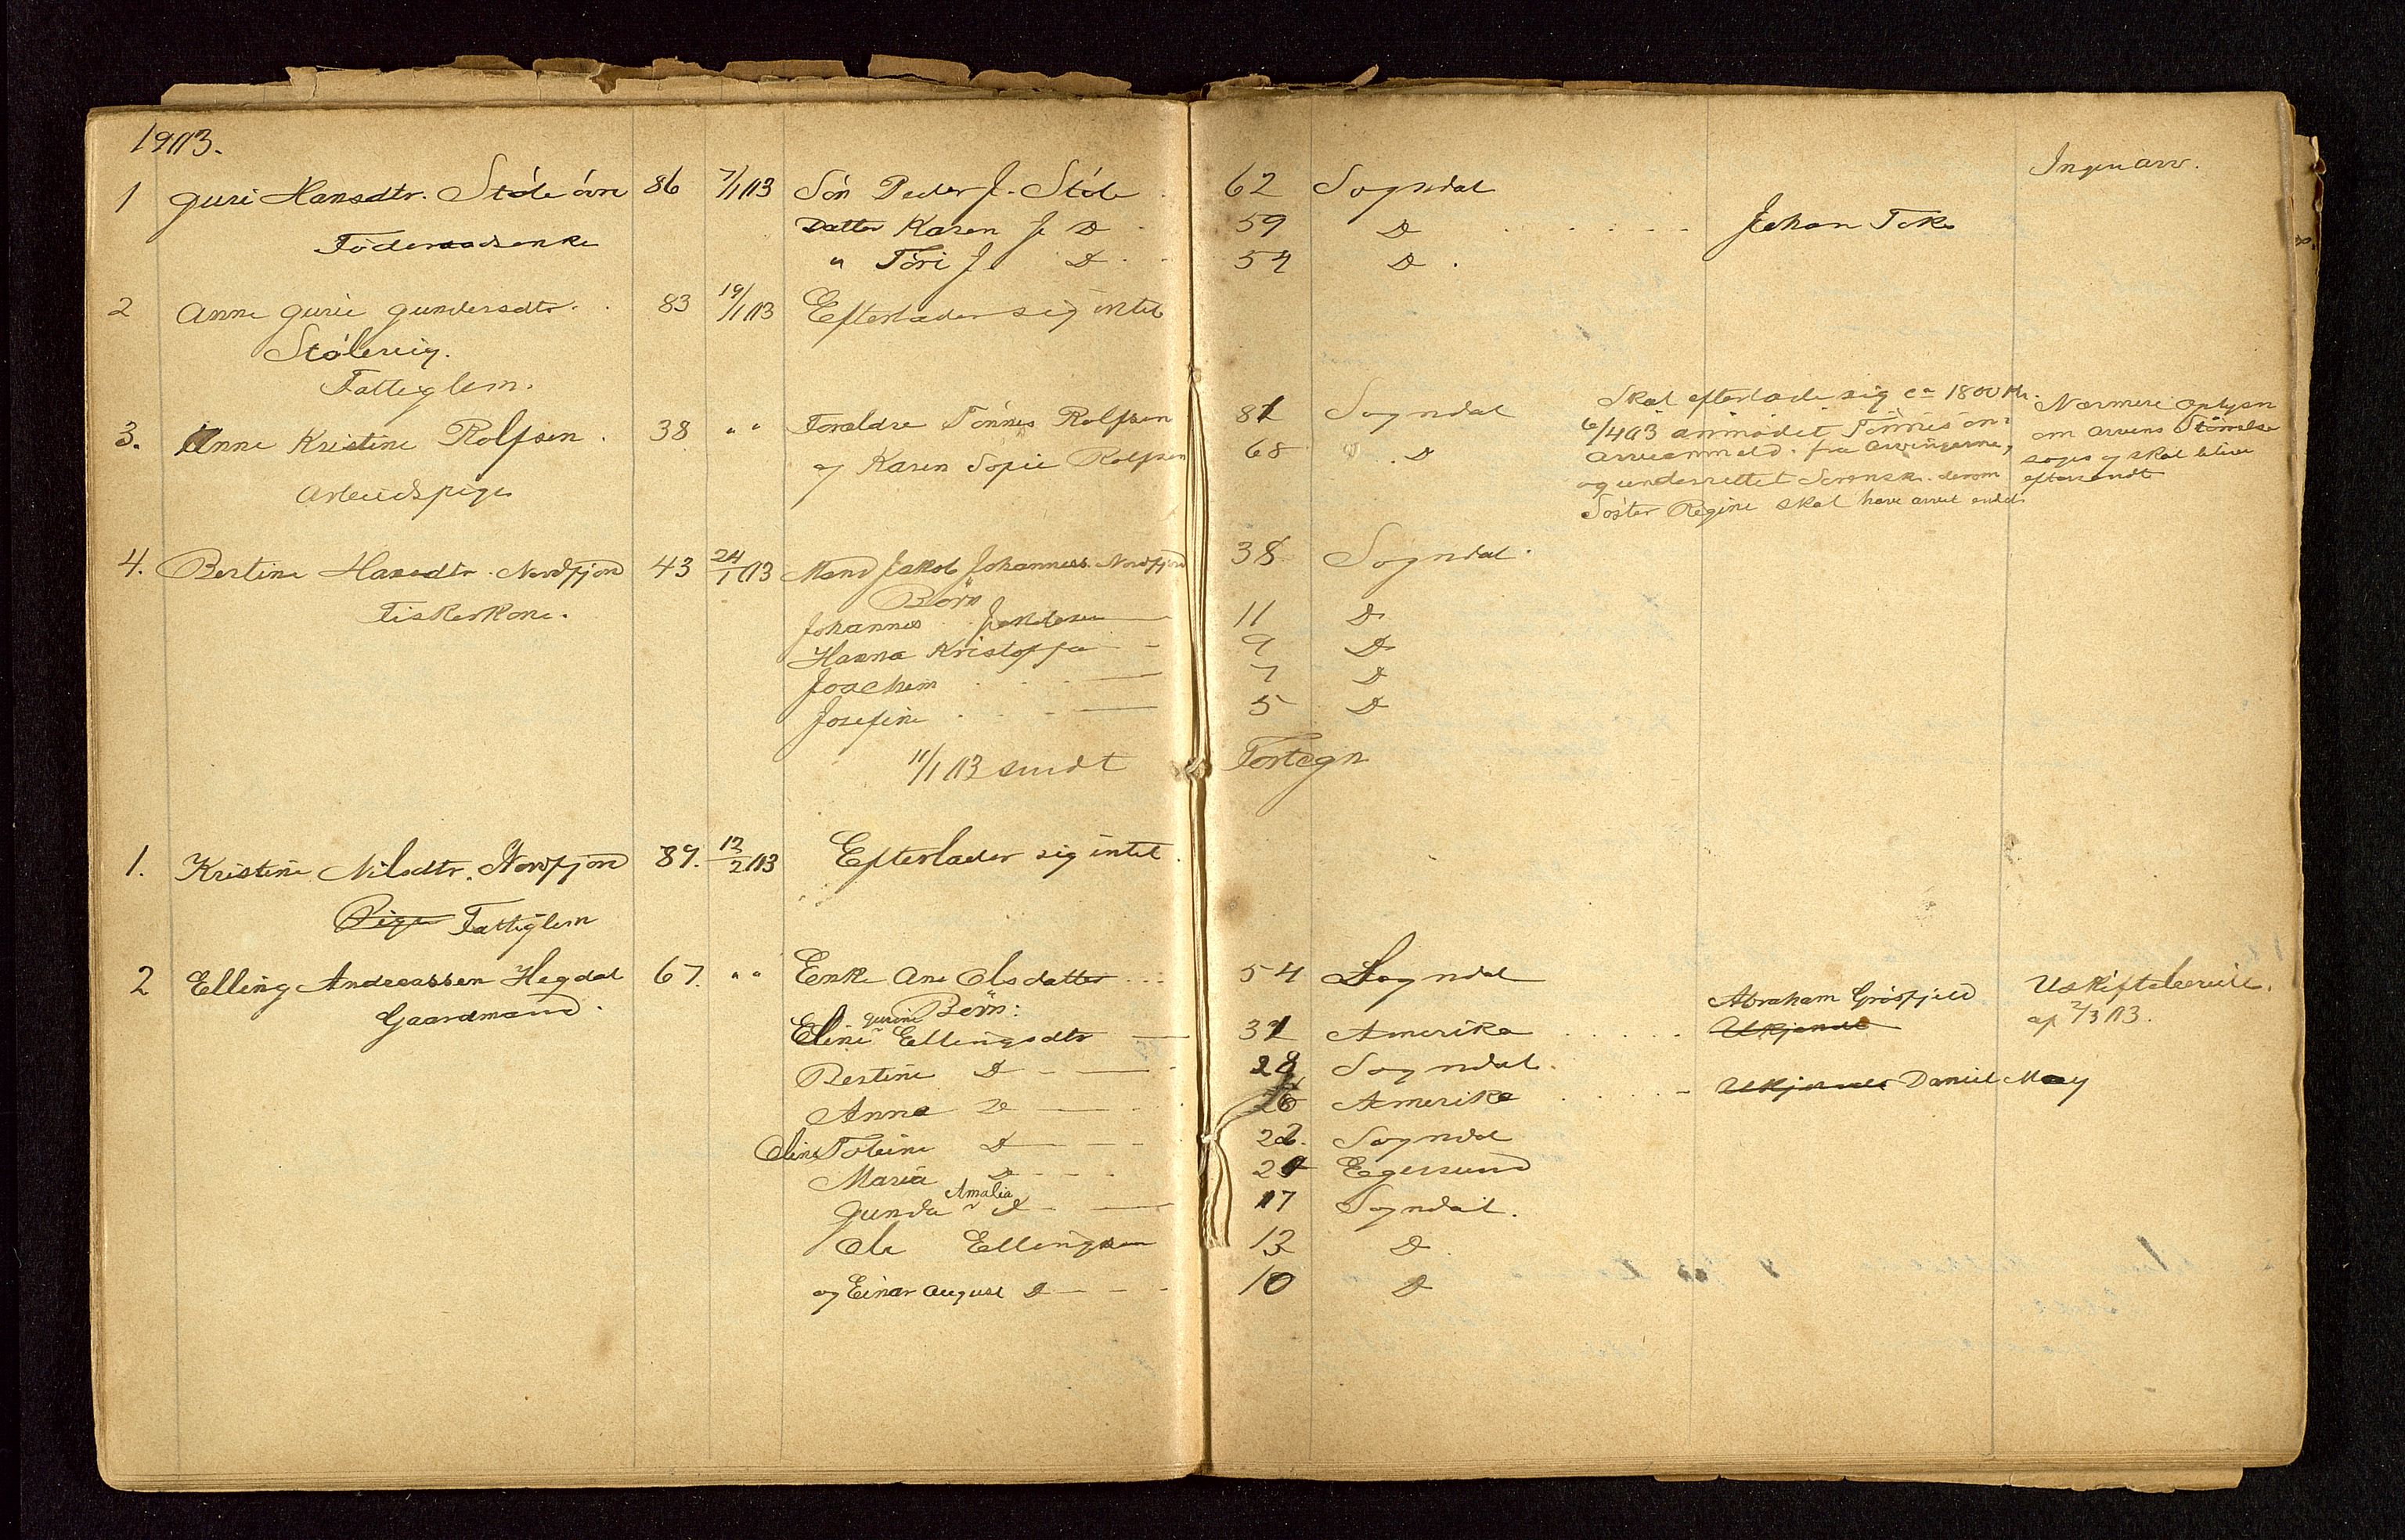 1913.
Ingen arv.
1 Guri Hansdtr. Støle övre 86 7/1 13 Søn Peder J. Støle 62 Sogndal
Föderaadsenke Datter Karen J. D 59 D Johan
" Töri J. D 54 D
2 Anne Gurie Gundersdtr. 83 19/1 13 Efterlader sig intet
Stölevig.
Fattiglem.
3. Anne Kristine Rolfsen. 38 " " Foraldre Tönnes Rolfsen 81 Sogndal
og Karen Sopie Rolfsen 68 D
Arbeidspige
Skal efterlade sig ca 1800 Kr.
6/4 13 anmodet Tönnes om
arveanmeld. fra arvingerne,
og underrettet Sorensk. derom
Söster Regine skal have arvet
Nærmere oplysn
om arvens Störrelse
søges og skal blive
eftersendt
4. Bertine Hansdtr. Nordfjord 43 24/1 13 Mand Jakob Johanness. Nordfjord 38 Sogndal.
Fiskerkone. Børn
Johannes Jakobsen 11 D
Hanna Kristoffa 9 D
Joachim 7 D
Josefine 5 D
11/1 13 sendt Fortegn
1. Kristine Nilsdtr. Nordfjord 89. 12/2 13 Efterlader sig intet.
Pige Fattiglem
2 Elling Andreassen Hegdal 67. " " Enke Ane Olsdatter 54 Sogndal
Gaardmand. Børn:
Eline Gurine Ellingsdtr 31 Amerika Ukjendt Abraham Grösfjeld
Uskiftebevill.
af 2/3 13.
Bertine D 28 Sogndal.
Anna D 26 Amerika Ukjendt Daniel May
Oline Toleine D 22. Sogndal
Maria D 21 Egersund
Gunda Amalia D 17 Sogndal.
Ole Ellingsen 13 D
og Einar August D 10 D